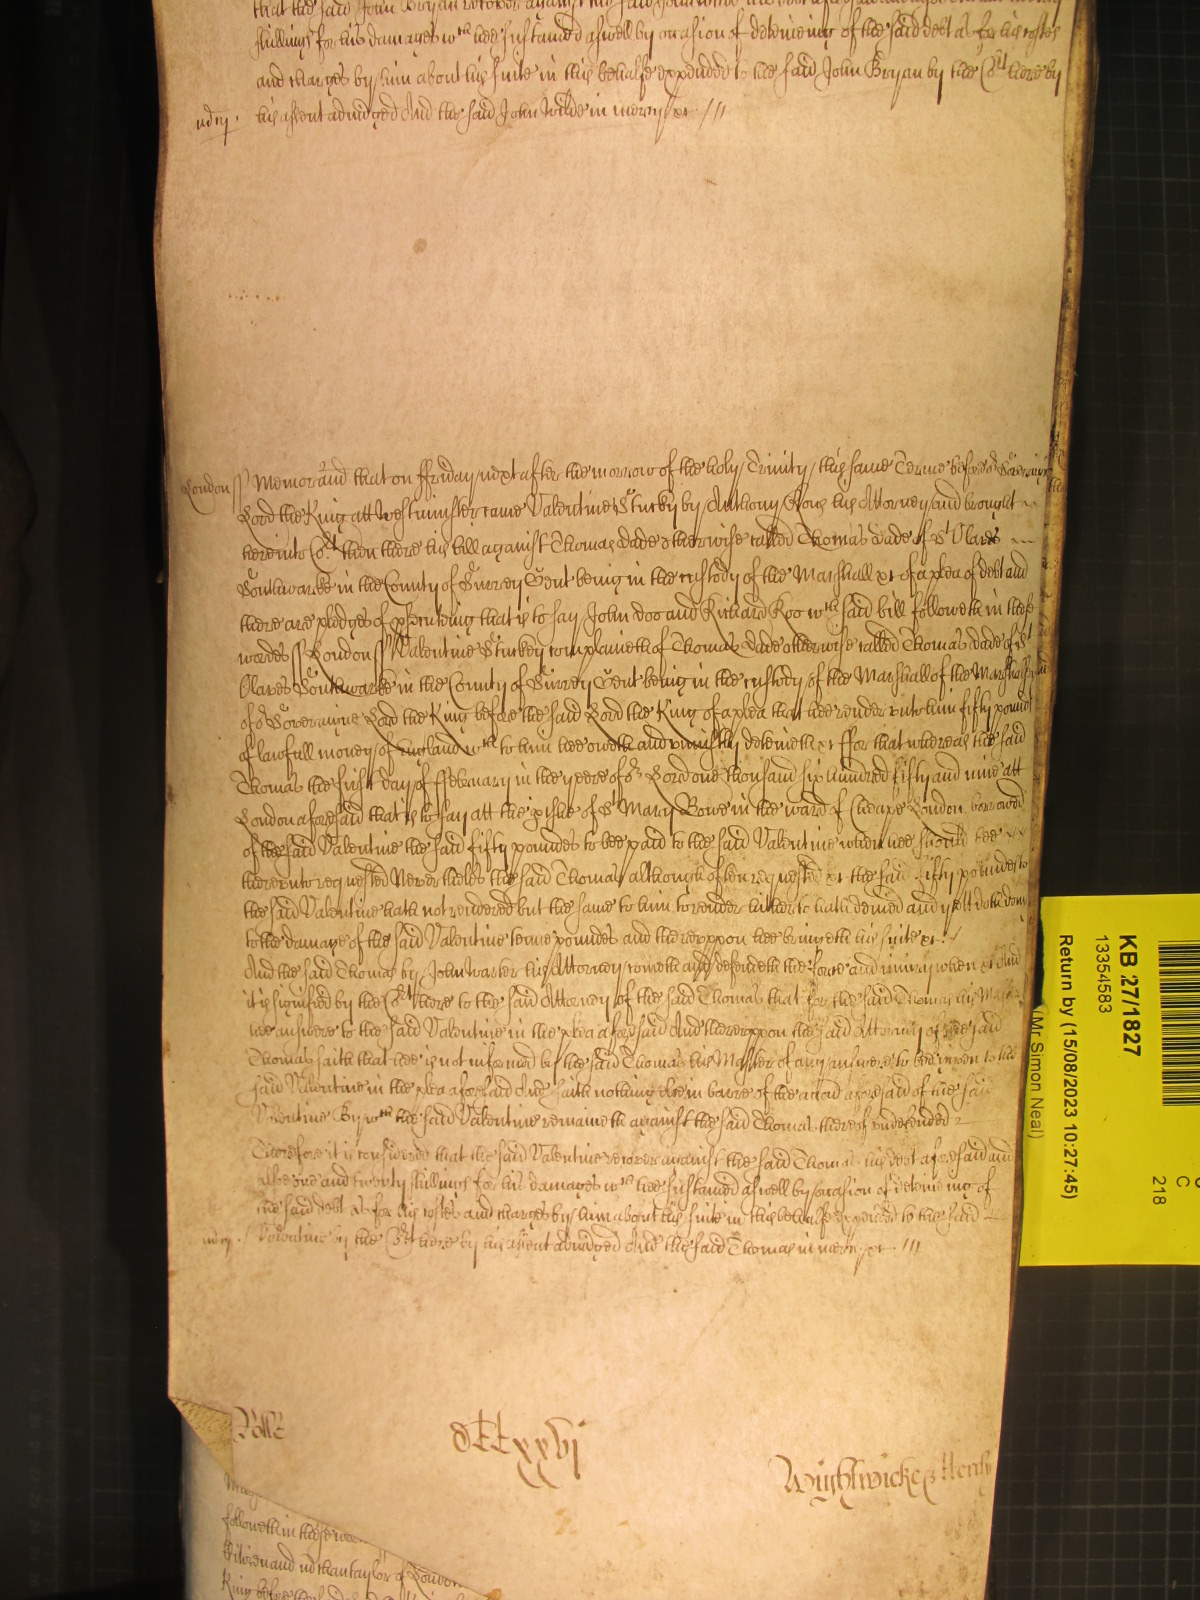 that the said John Bryan recover against the said John Wilde his debt aforesaid and
shillings for his damages wch hee sustained aswell by occasion of deteineing of the said debt as for his costes
and charges by him about his suite in this behalfe expended to the said John Bryan by the Cort here by
his assent adiudged And the said John Wilde in mercy xt ///
London ss Memorand that on ffriday next after the morrow of the holy Trinity this same Terme before or Soveraigne
Lord the King att Westminster came Valentine Stucky by Anthony his Attorney and brought
here into Cort then there his bill against Thomas Dade otherwise called Thomas Dade of St Olaves
Southwarke in the County of Surrey Gent being in the custody of the Marshall xt of a plea of debt and
there are pledges of prosecuting that is to say John Doo and Richard Roo wch said bill followeth in these
wordes ss London ss Valentine Stuckey complaineth of Thomas Dade otherwise called Thomas Dade of St
Olaves Southwarke in the County of Surrey Gent being in the custody of the Marshall of the Marshalsey
of or Soveraigne Lord the King before the said Lord the King of a plea that hee render unto him fifty pounds
of lawfull money of England wch to him hee oweth and uniustly deteineth xt ffor that whereas the said
Thomas the first day of ffebruary in the yeere of or Lord one thousand six hundred fifty and nine att
London aforesaid that is to say att the pishe of St Mary Bowe in the ward of Cheape London borrowed
of the said Valentine the said fifty poundes to bee paid to the said Valentine when hee should bee
thereunto requested Neverthelesse the said Thomas although often requested xt the said fifty poundes to
the said Valentine hath not rendered but the same to him to render hitherto hath denied and yett doth deny
to the damage of the said Valentine tenne poundes and thereuppon hee bringeth his suite xt
And the said Thomas by John Warter his Attorney cometh and defendeth the force and iniury when xt And
it is signified by the Cort here to the said Attorney of the said Thomas that for the said Thomas his Master
hee answere to the said Valentine in the plea aforesaid And thereuppon the said Attorney of the said
Thomas saith that hee is not informed by the said Thomas his Master of any answere to bee given to the
said Valentine in the plea aforesaid And saith nothing else in barre of the accon aforesaid of the said
Valentine By wch the said Valentine remaineth against the said Thomas thereof undefended
Therefore it is considered that the said Valentine recover against the said Thomas his debt aforesaid and
alsoe one and twenty shillings for his damages wch hee sustained aswell by occasion of deteineing of
the said debt as for his costes and charges by him about his suite in this behalfe expended to the said
Valentine by the Cort here by his assent adiudged And the said Thomas in mercy xt ///
Rolle
CCCxxvj
Wightwicke &
followeth in these
of London
King before the
KB 27/1827
13354583
Return by (15/08/2023 10:27:45)
(Mr Simon Neal)
C
218